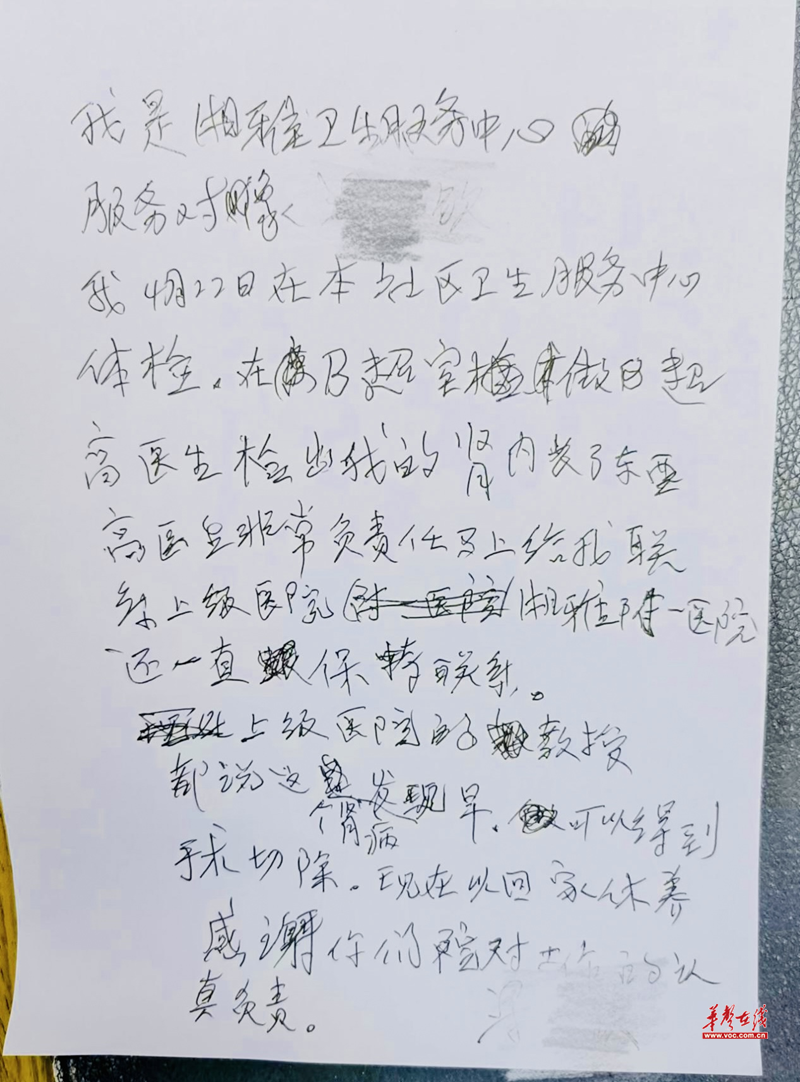 我是湘雅路卫生服务中心
服务对像
我4月22日在本社区卫生服务中心
体检。在B超室做B超
高医生检出我的肾内长了东西
高医生非常负责任马上给我联
系上级医院(湘雅附一医院
还一直保持联系。
上级医院的教授
都说这个肾病发现早。可以得到
手术切除。现在以回家休养
感谢你们对工作的认
真负责。
华声在线
www.voc.com.cn